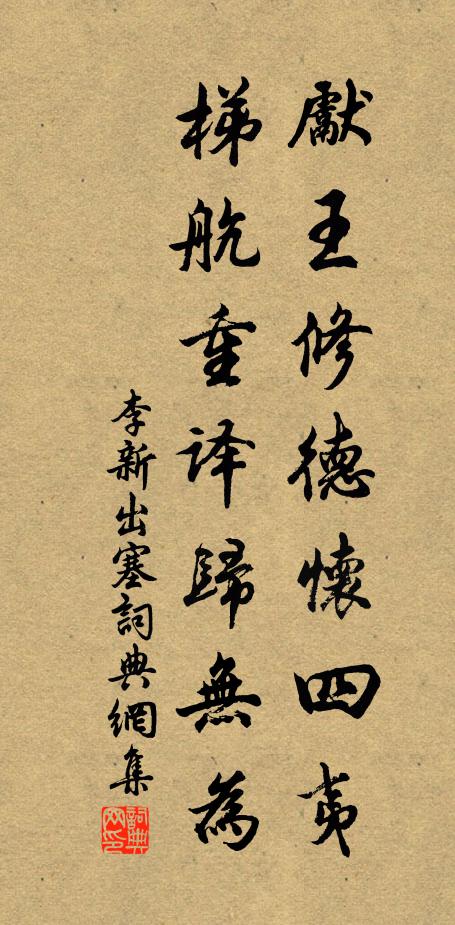 獻王修德懷四夷
梯航重译歸無為
李新出塞詞典網集
詞典網印